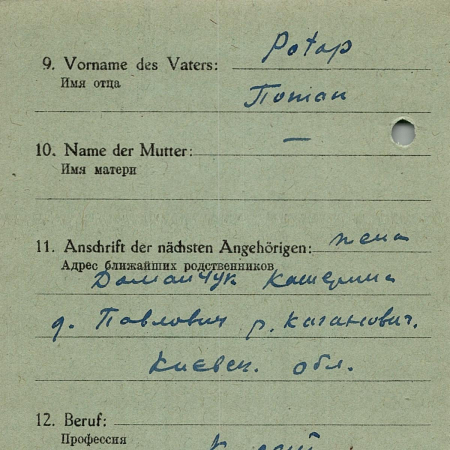 9. Vorname des Vaters:
Имя отца
Потап
10. Name der Mutter: —
Имя матери
11. Anschrift der nächsten Angehörigen: жена
Адрес ближайших родственников
Доманчук Катерина
д. Павлович р. Каганович.
Киевск. обл.
12. Beruf:
Профессия